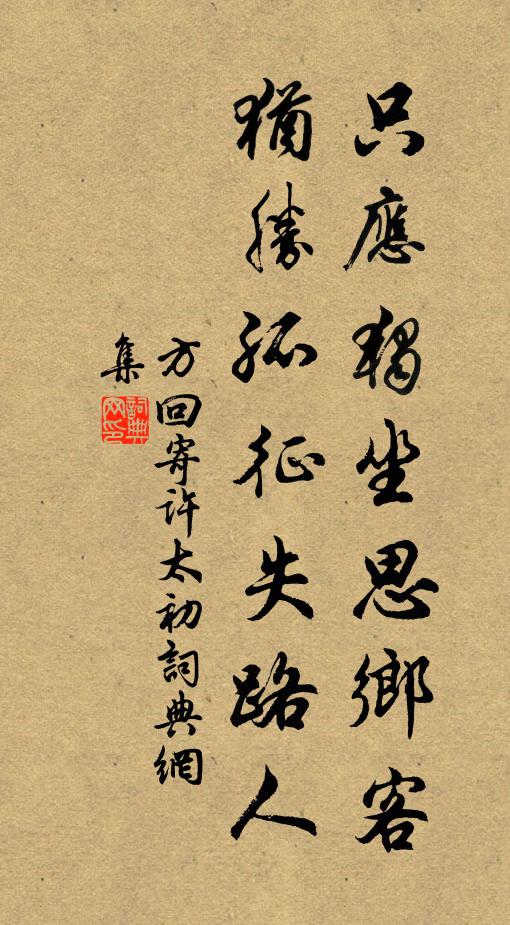 只應獨坐思鄉客
猶勝孤征失路人
方回寄許太初詞典網
集
詞典
网印